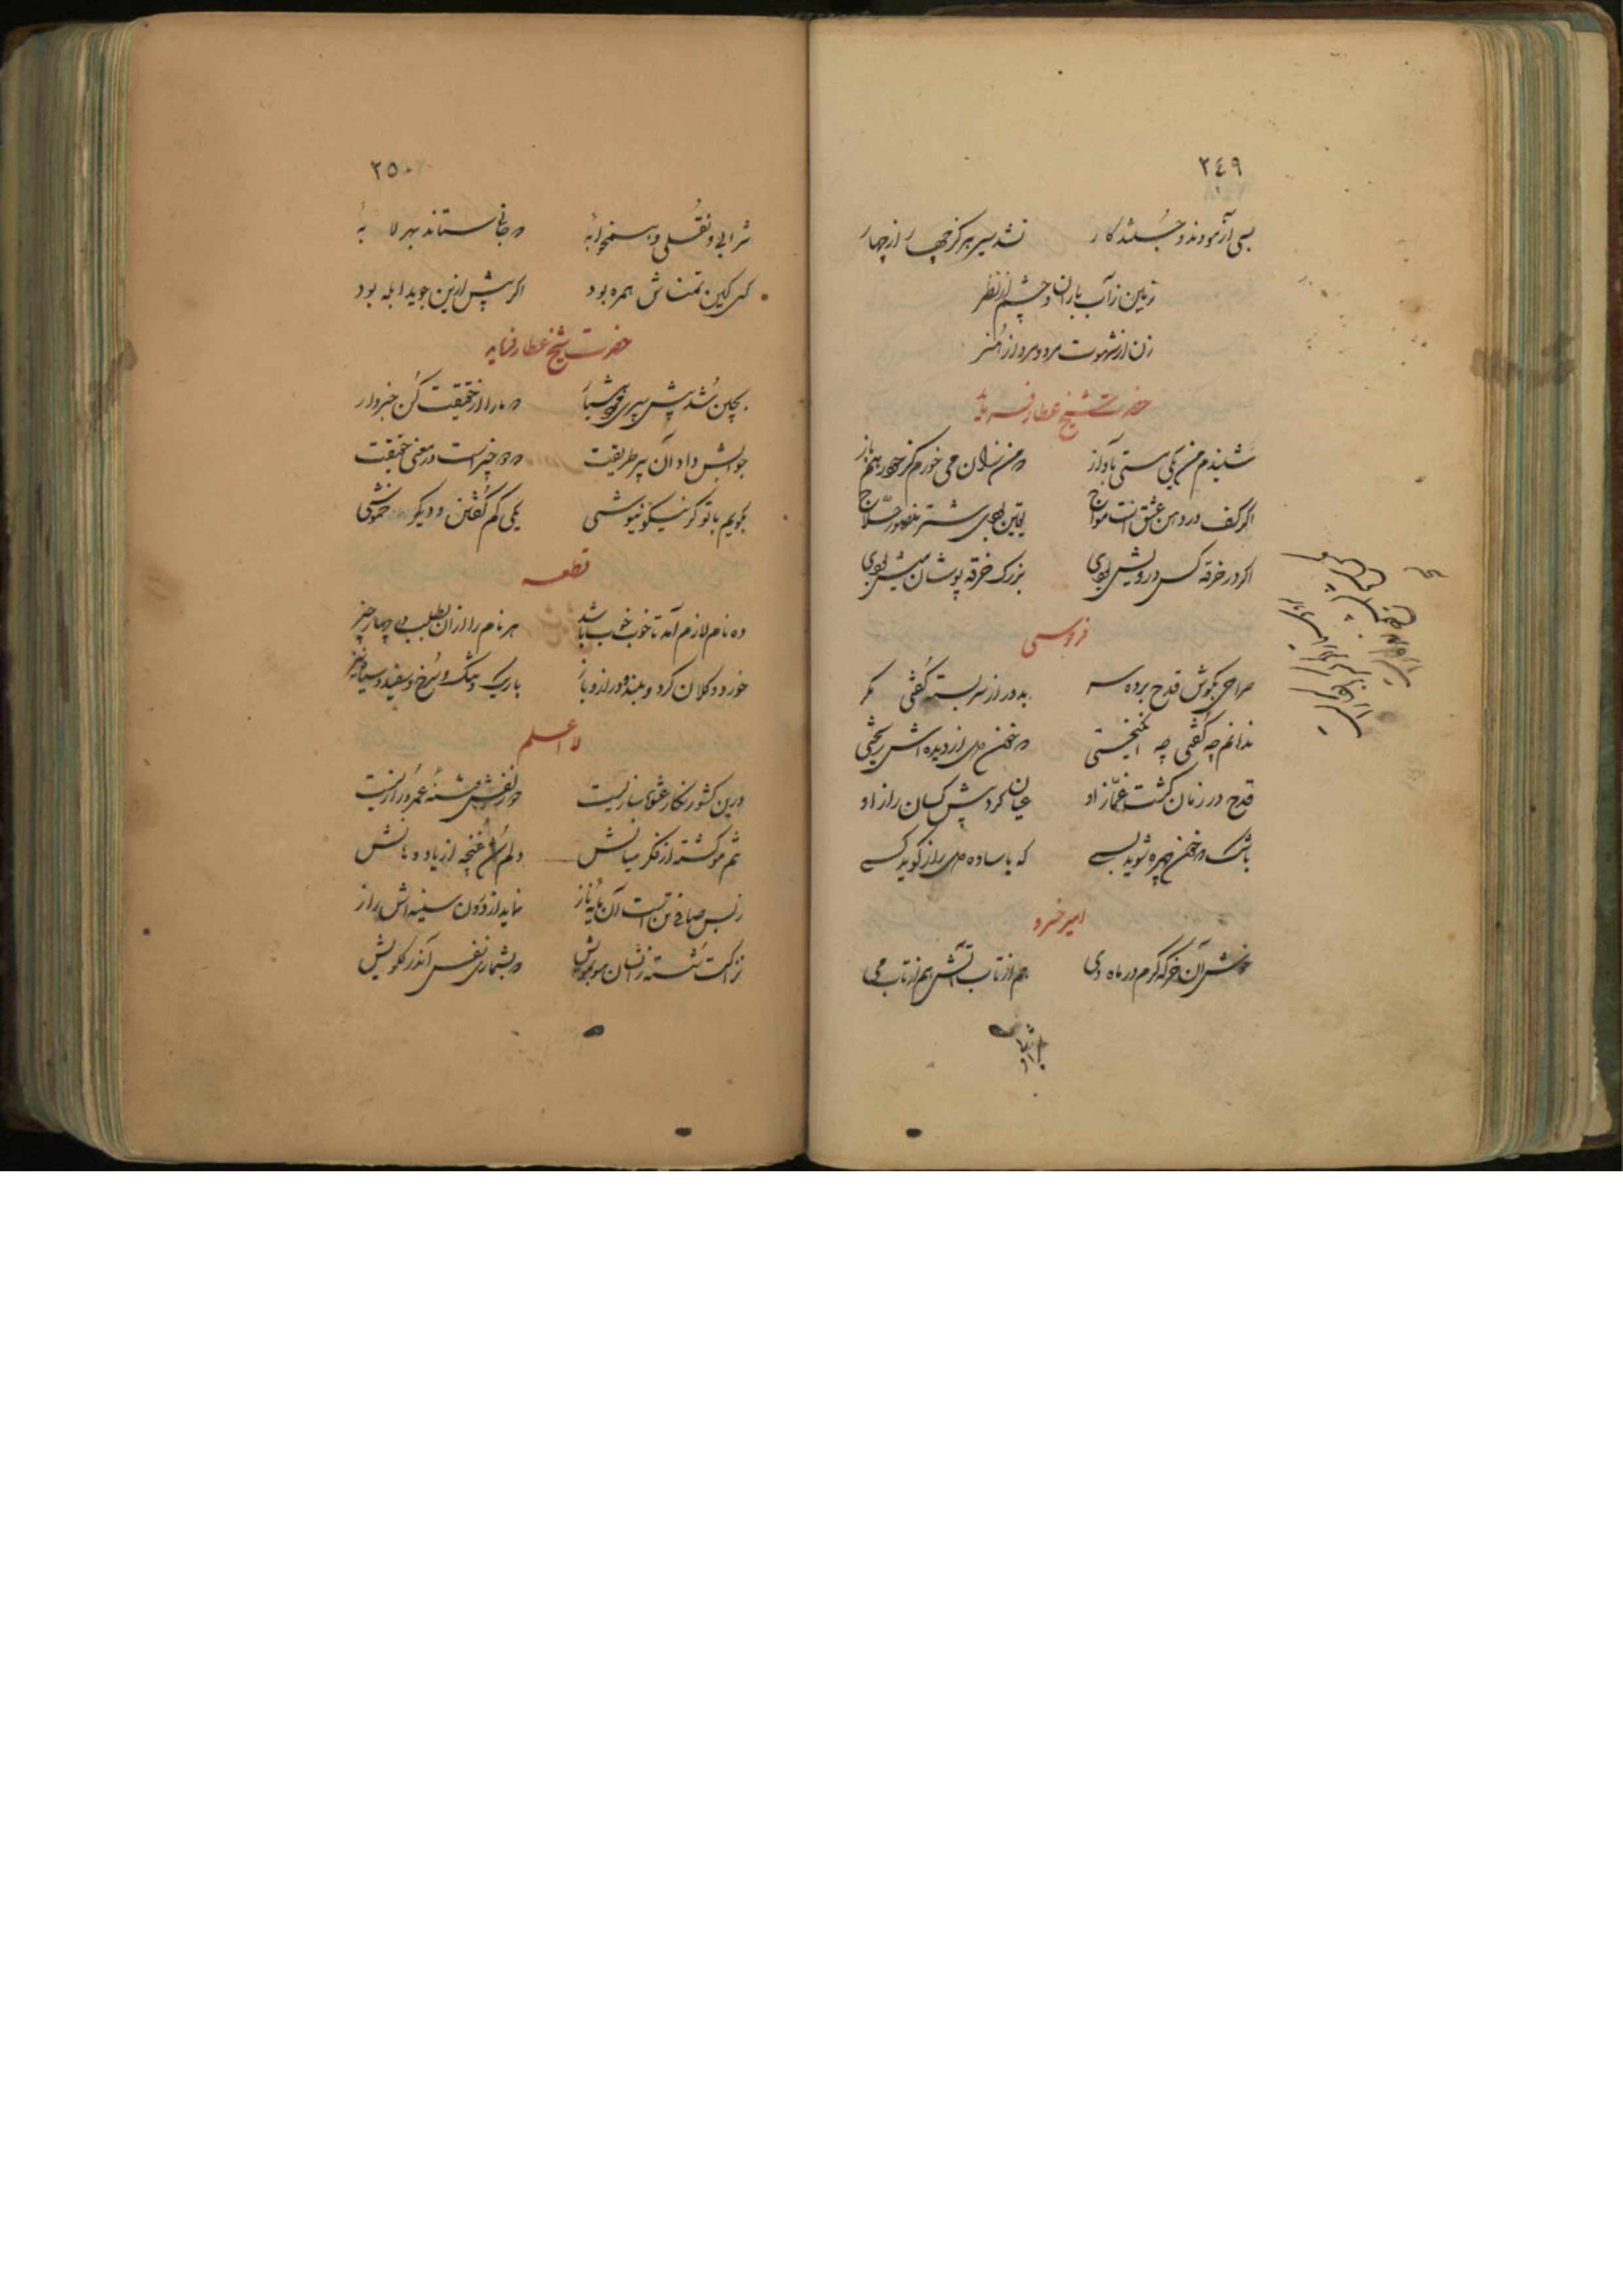 ٢٤٩
بسی آزمودند و جستند کار نشد سیر هرگز چهار از چهار
زمین ز آب باران و چشم از نظر
زن از شهوت مرد و مرد از هنر
حضرت شیخ عطار فرماید
شنیدم من یکی مستی باواز من نان می خورم کز خود رهم باز
اگر کف در دهن عشق است مواج یقین بودی شتر منصور حلاج
اگر در خرقه کس درویش بودی بزرگ خرقه پوشان میش بودی
فردوسی
صراحی بگوش قدح برده سر بدو راز سربسته گفتی مگر
ندانم چه گفتی چه انگیختی خون دل از دیده اش ریختی
قدح در زمان گشت غماز او عیان کرد پیش کسان راز او
باشک خون چهره شوید بسی که با ساده دل راز گوید کسی
امیر خسرو
خوش آن خرگه گرم در ماه دی هم از تاب آتش هم از تاب می
شرابی
٢٥٠
شرابی و نقلی و هم
کسی کین تمناش همره بود اگر بیش ازین جوید ابله بود
حضرت شیخ عطار فرماید
یکی شد پیش پیری مارا از حقیقت کن خبردار
جوابش داد آن پیر طریقت چیز است در معنی حقیقت
بگویم با تو گر نیکو نیوشی یکی کم گفتن و دیگر خموشی
قطعه
ده نام لازم آمد تا خوب خوب باشد هر نام را از آن بطلب بی چهار چیز
خورد و کلان گرد و بلند و دراز و باز باریک و تنگ و سرخ و سفید و سیاه نیز
لا اعلم
درین کشور نگار عشوه سازیست زلفش رشته عمر درازیست
تنم مو گشته از فکر میانش دلم غنچه از یاد دهانش
ز بس صافی تن است آن مایه ناز نماید از درون سینه اش راز
نزاکت رسته زانسان مو بمویش بشماری نفس اندر گلویش